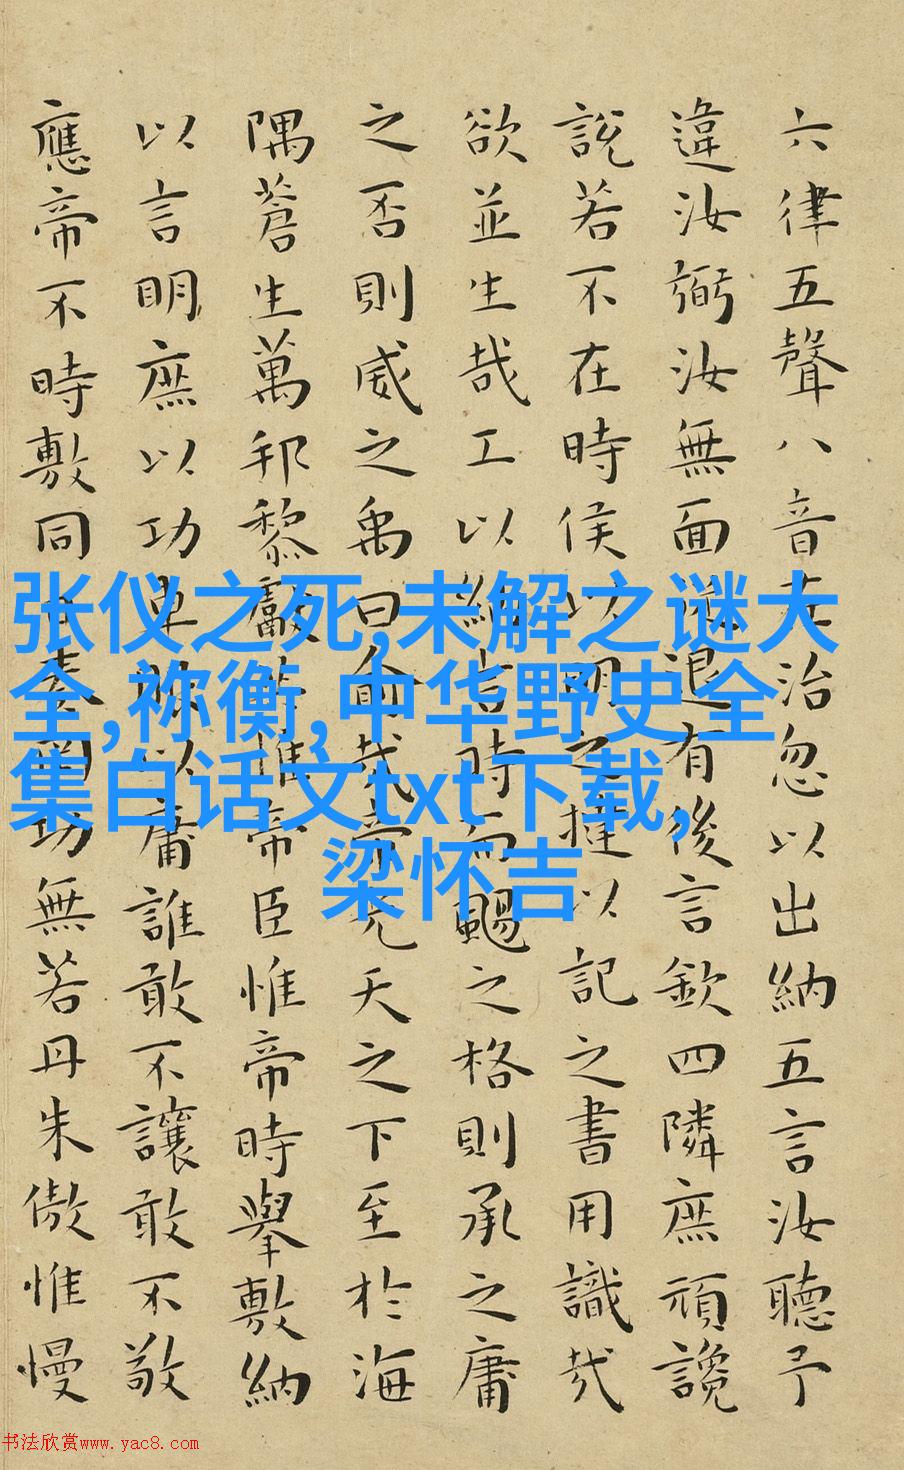 六律五聲八音在治忽以出納五言汝聽予
違汝弼汝無面從退有後言欽四隣庶頑讒
說若不在時侯以明之撻以記之書用識哉
欲並生哉工以納言時而颺之格則承之庸
之否則威之禹曰俞哉帝光天之下至於海
隅蒼生萬邦黎獻共惟帝臣惟帝時舉敷納
以言明庶以功車服以庸誰敢不讓敢不敬
應帝不時敷同日奏罔功無若丹朱傲惟慢
张仪之死,未解之谜大
全,祢衡,中华野史全
集白话文txt下载,
梁怀吉
书法欣赏www.yac8.com